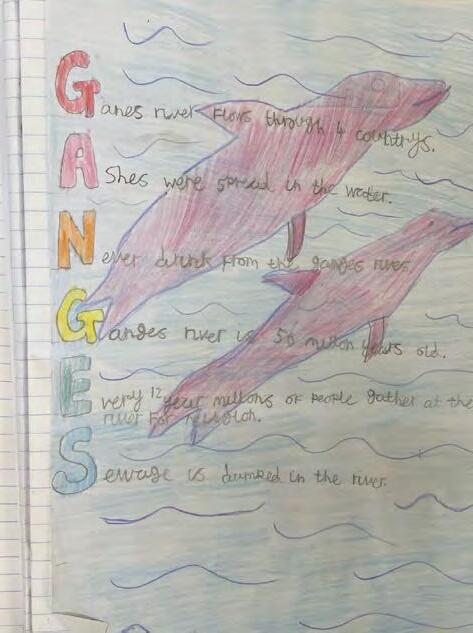 Ganes river flows through 4 countrys.
Ashes were spread in the water.
Never drink from the ganges river.
Ganges river is 50 millon years old.
Every 12 year millons of people gather at the
river for religion.
Sewage is dumked in the river.